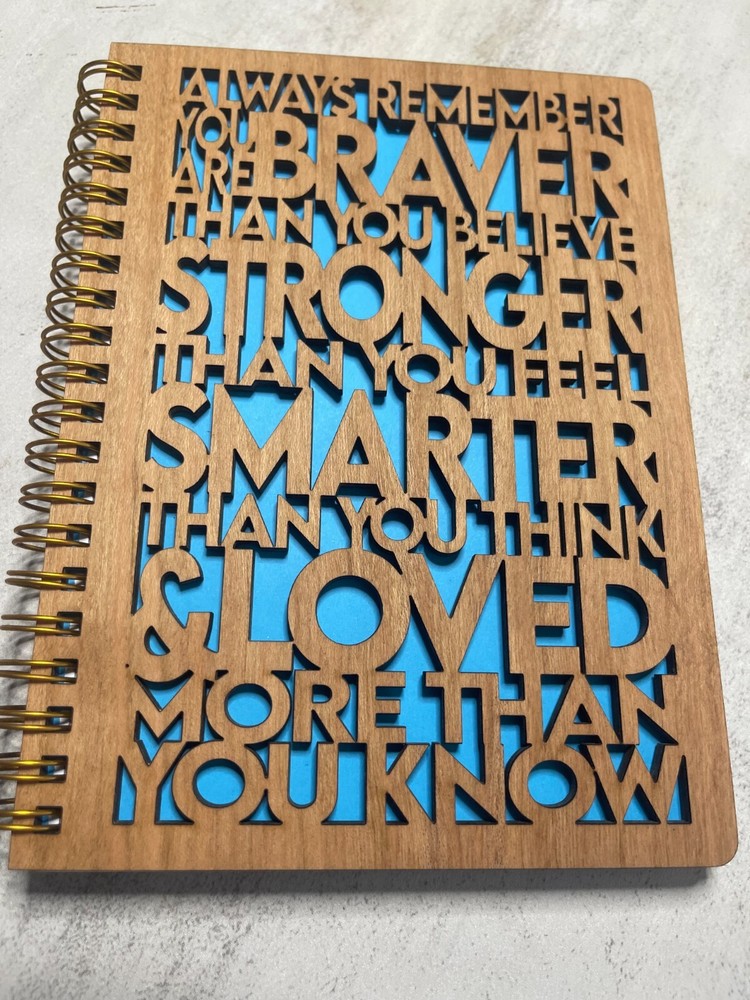 ALWAYS REMEMBER
YOU
ARE BRAVER
THAN YOU BELIEVE
STRONGER
THAN YOU FEEL
SMARTER
THAN YOU THINK
& LOVED
MORE THAN
YOU KNOW